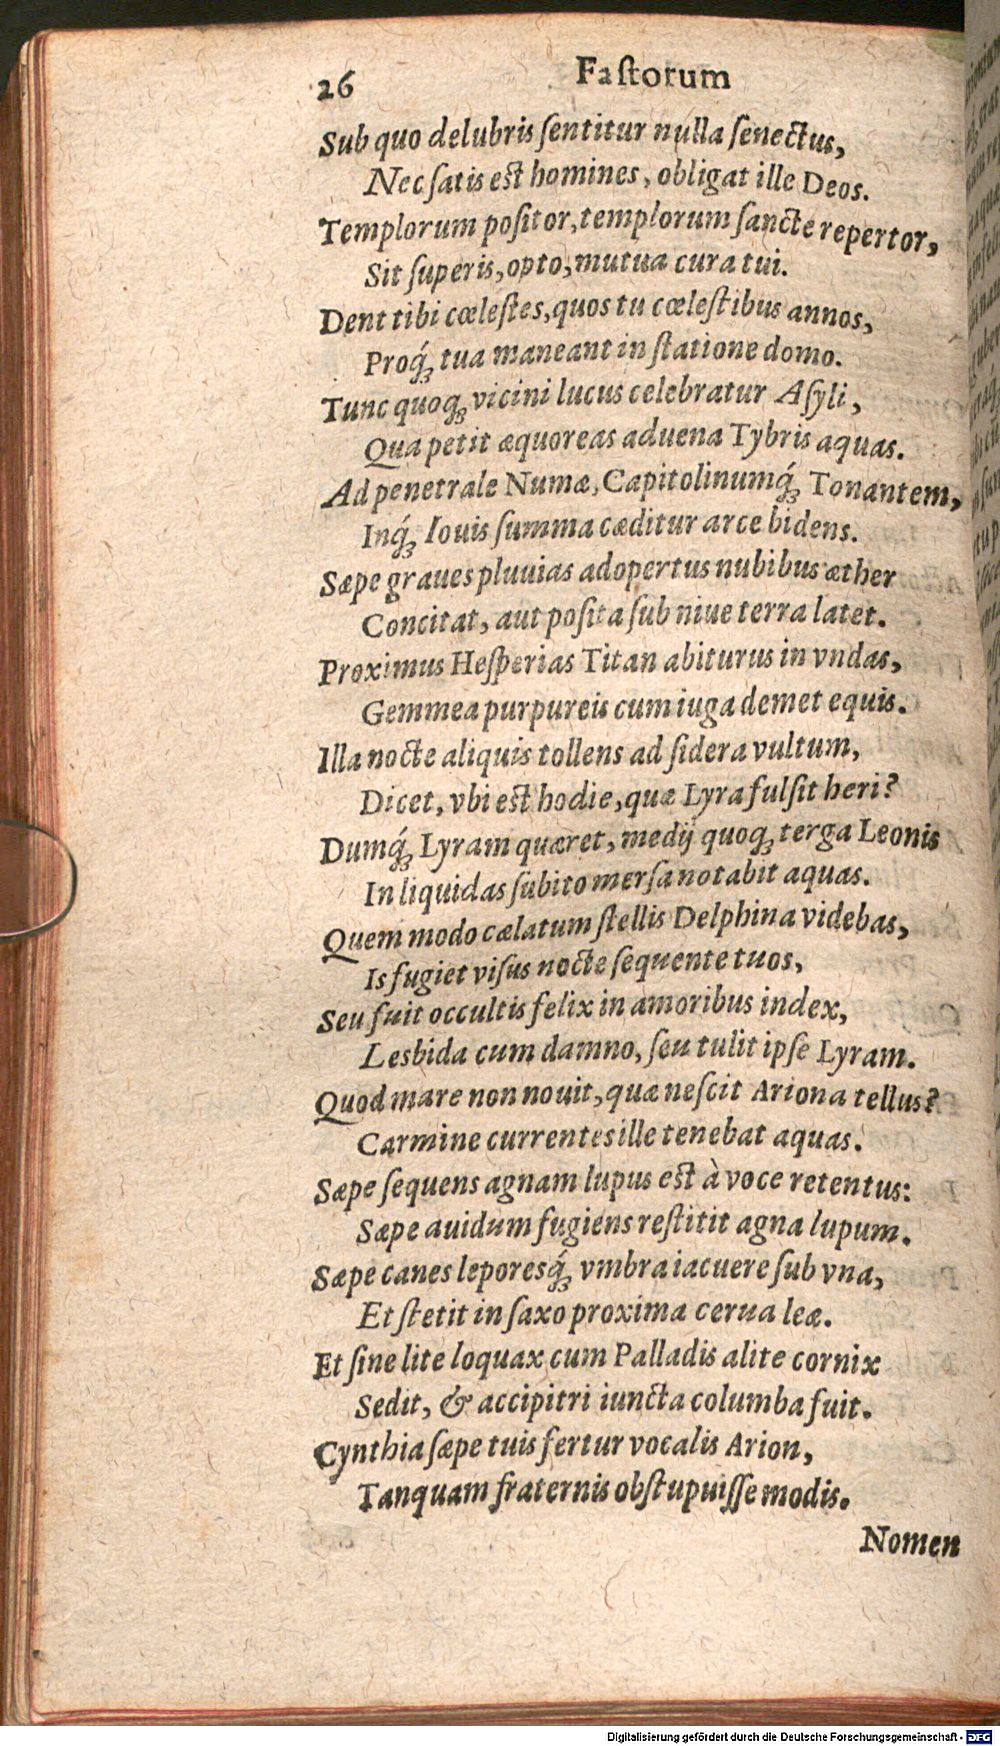 26 Faſtorum
Sub quo delubris ſentitur nulla ſenectus,
Nec ſatis est homines, obligat ille Deos.
Templorum poſitor, templorum ſancte repertor,
Sit ſuperis, opto, mutua cura tui.
Dent tibi cœleſtes, quos tu cœleſtibus annos,
Proq́ꝫ tua maneant in ſtatione domo.
Tunc quoqꝫ vicini lucus celebratur Aſyli,
Qua petit æquoreas aduena Tybris aquas.
Ad penetrale Numæ, Capitolinumq́ꝫ Tonantem,
Inq́ꝫ Iouis ſumma cæditur arce bidens.
Sæpe graues pluuias adopertus nubibus æther
Concitat, aut poſita ſub niue terra latet.
Proximus Heſperias Titan abiturus in vndas,
Gemmea purpureis cum iuga demet equis.
Illa nocte aliquis tollens ad ſidera vultum,
Dicet, vbi est hodie, quæ Lyra fulſit heri?
Dumq́ꝫ Lyram quæret, medij quoqꝫ terga Leonis
In liquidas ſubito merſa notabit aquas.
Quem modo cælatum ſtellis Delphina videbas,
Is fugiet viſus nocte ſequente tuos,
Seu fuit occultis felix in amoribus index,
Lesbida cum damno, ſeu tulit ipſe Lyram.
Quod mare non nouit, quæ neſcit Ariona tellus?
Carmine currentes ille tenebat aquas.
Sæpe ſequens agnam lupus est à voce retentus:
Sæpe auidum fugiens reſtitit agna lupum.
Sæpe canes leporesq́ꝫ vmbra iacuere ſub vna,
Et ſtetit in ſaxo proxima cerua leæ.
Et ſine lite loquax cum Palladis alite cornix
Sedit, & accipitri iuncta columba fuit.
Cynthia ſæpe tuis fertur vocalis Arion,
Tanquam fraternis obſtupuiſſe modis.
Nomen
Digitalisierung gefördert durch die Deutsche Forschungsgemeinschaft - DFG